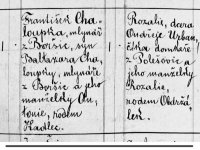 František Cha-
loupka, mlynář
z Boršic, syn
Baltazara Cha-
loupky, mlynáře
z Boršic a její
manželky An-
tonie, rodem
Hadlec.
Rozalie, dcera
Ondřeje Urban,
domkáře
z Polešovic a
jeho manželky
Rozalie,
rodem Ondrá-